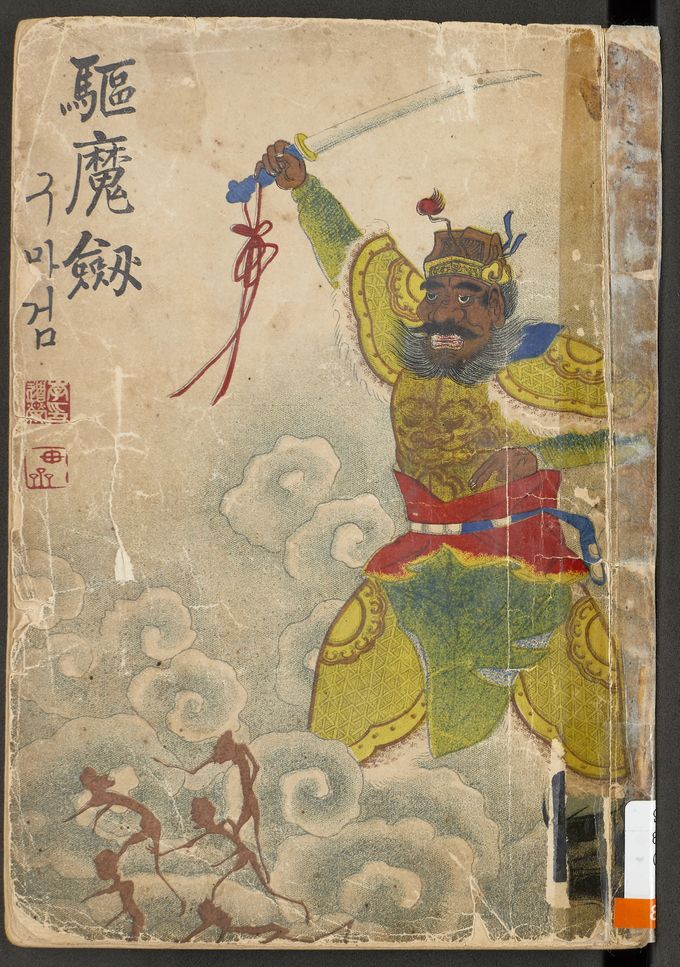 驅魔劒
구마검